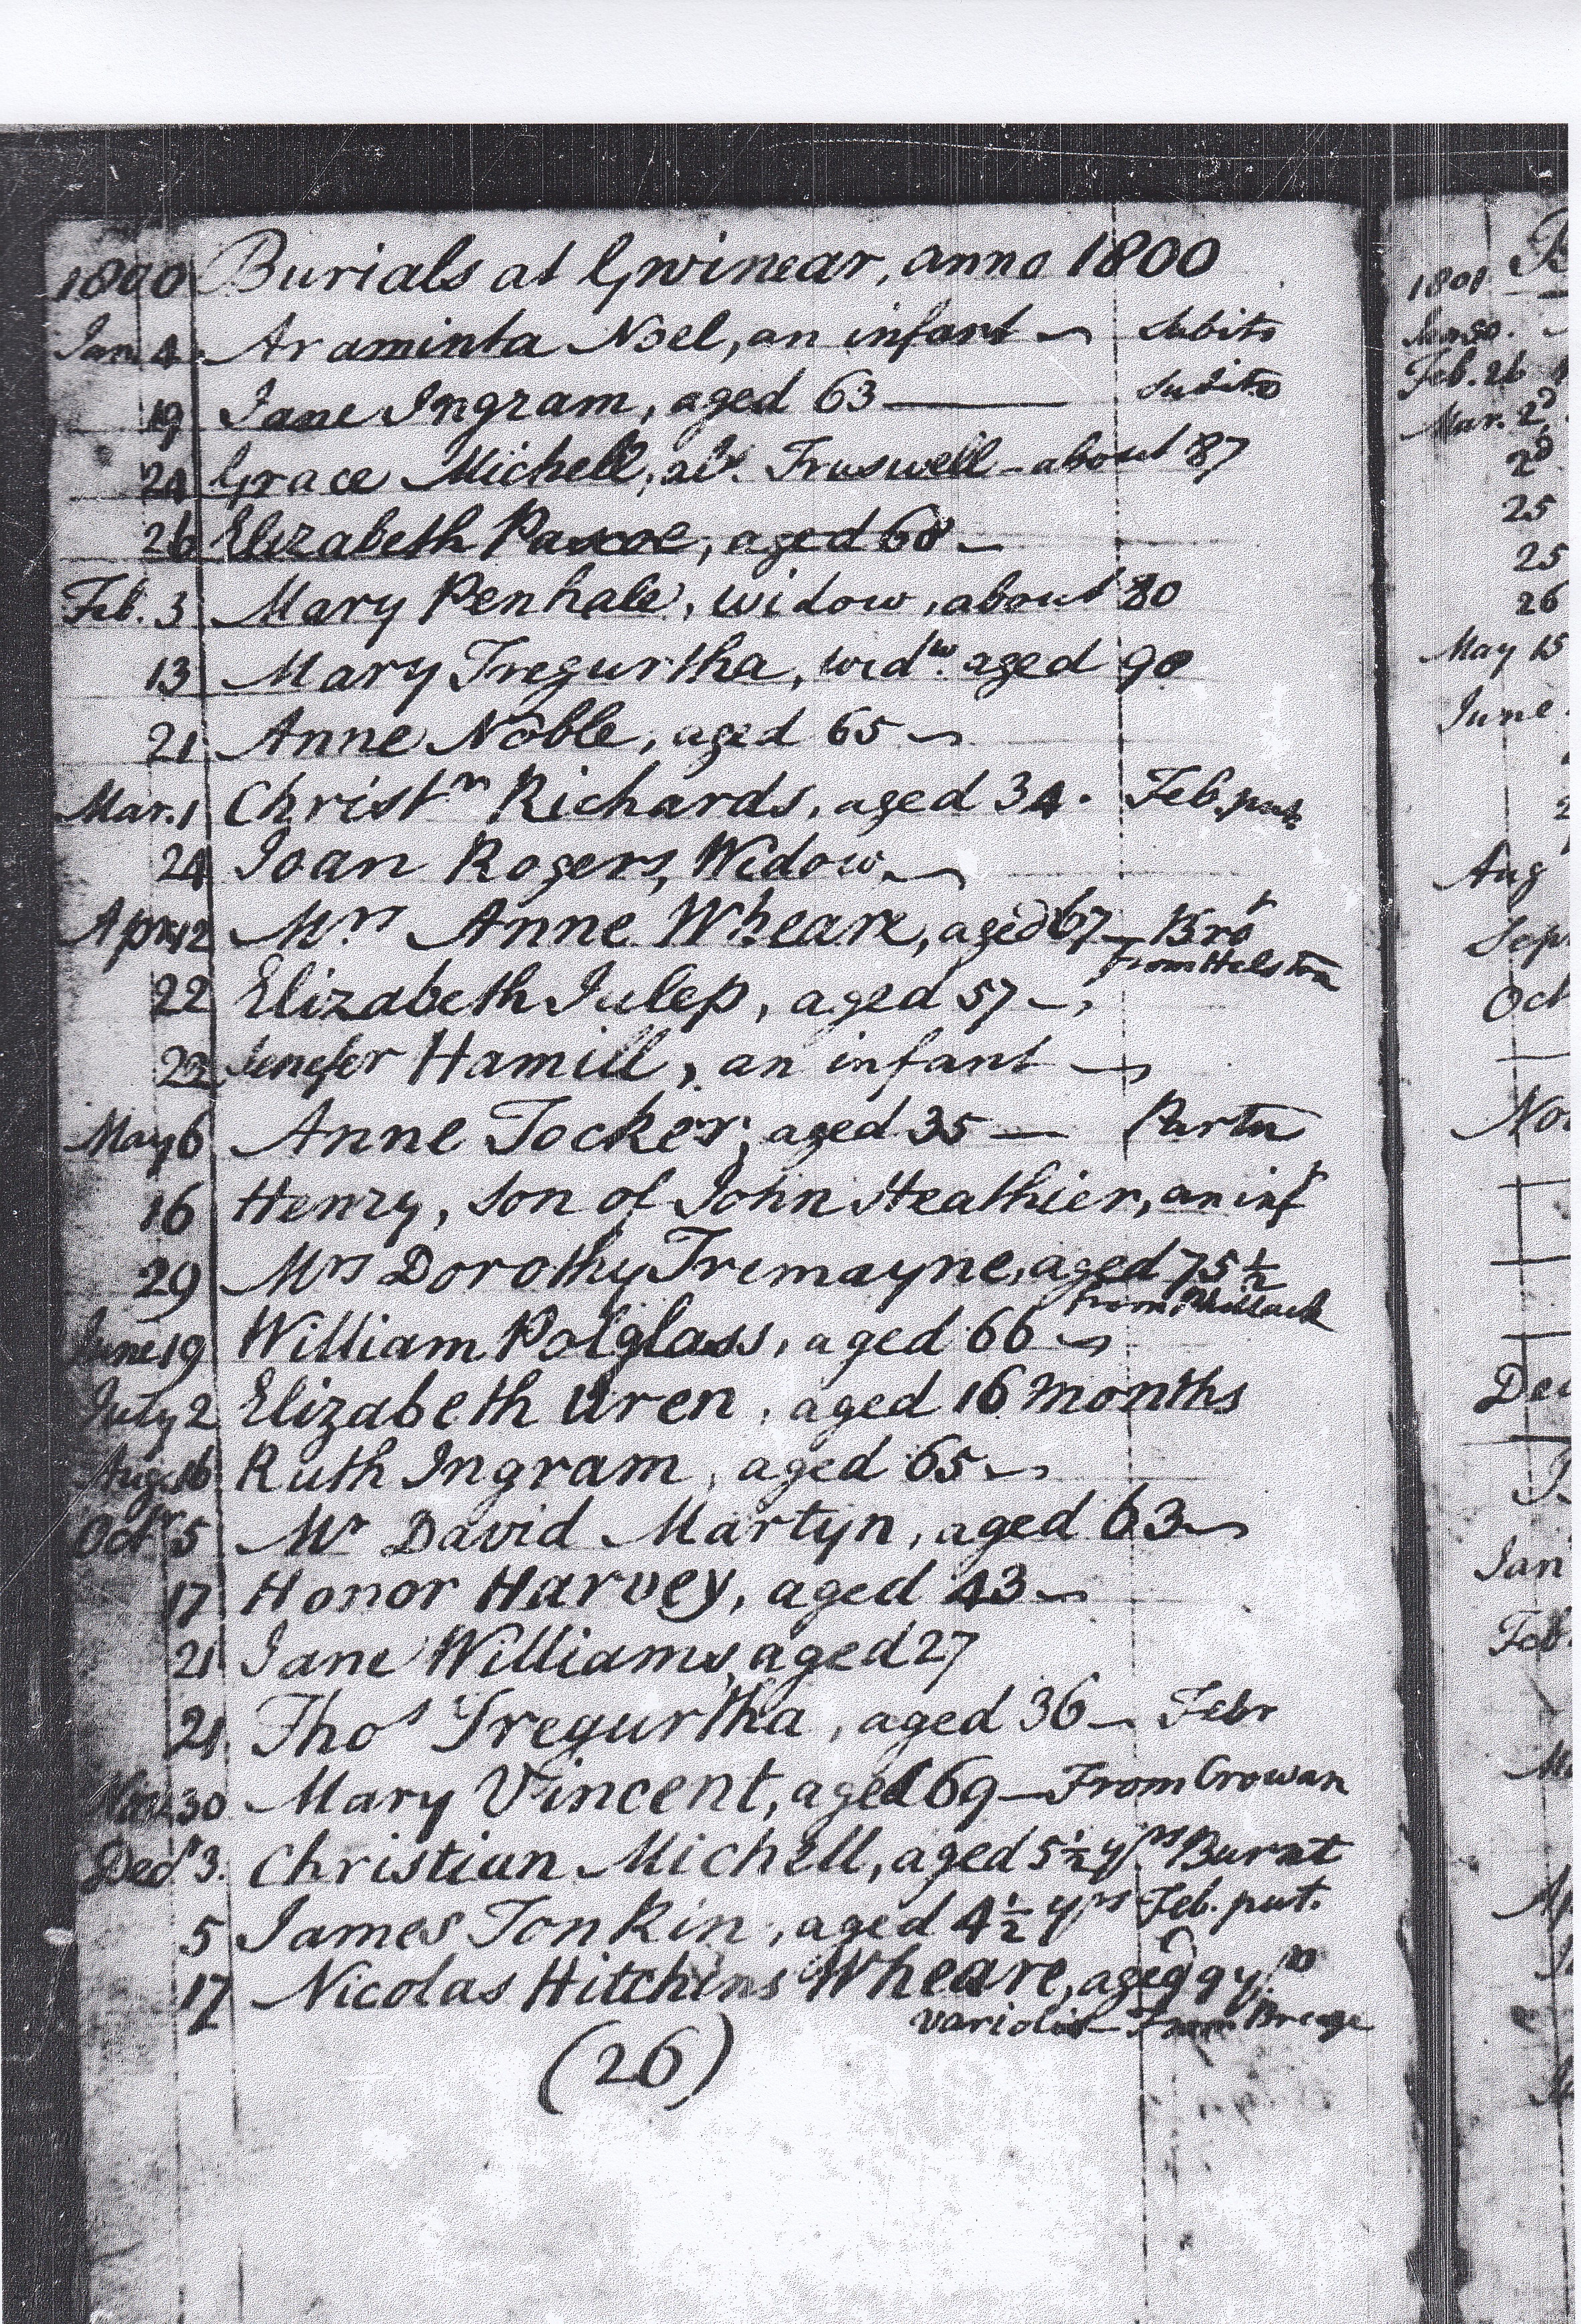 1800 Burials at Gwinear, anno 1800
Jan. 4. Araminta Noel, an infant — Subito
19 Jane Ingram, aged 63 — Subito
24 Grace Michell, als. Truswell — about 87
26 Elizabeth Pascoe, aged 68 —
Feb. 3 Mary Penhale, widow, about 80
13 Mary Tregurtha, widw. aged 90
21 Anne Noble, aged 65 —
Mar. 1 Christr Richards, aged 34. Feb. put.
24 Joan Rogers, Widow —
Apr. 12 Mrs Anne Wheare, aged 67 — Bro't
from Helston
22 Elizabeth Julep, aged 57 —
23 Jenefer Hamill, an infant —
May 6 Anne Tocker, aged 35 — Partu
16 Henry, son of John Heathier, an inft
29 Mrs Dorothy Tremayne, aged 75½
from Phillack
June 19 William Polglass, aged 66 —
July 2 Elizabeth Uren, aged 16 months
Aug. 16 Ruth Ingram, aged 65 —
Octr 5 Mr David Martyn, aged 63 —
17 Honor Harvey, aged 43 —
21 Jane Williams, aged 27
21 Thos Tregurtha, aged 36 — Febr
30 Mary Vincent, aged 69 — From Crowan
Decr 3. Christian Michell, aged 5½ yrs Burnt
5 James Tonkin, aged 4½ yrs Feb. put.
17 Nicolas Hitchins Wheare, aged 9 yrs
Variolis — From Breage
(26)
1801 B
Jan 30.
Feb. 26
Mar. 2d
2d
25
25
26
May 15
June
Aug
Sep
Oct
Nov
Dec
Jan
Feb